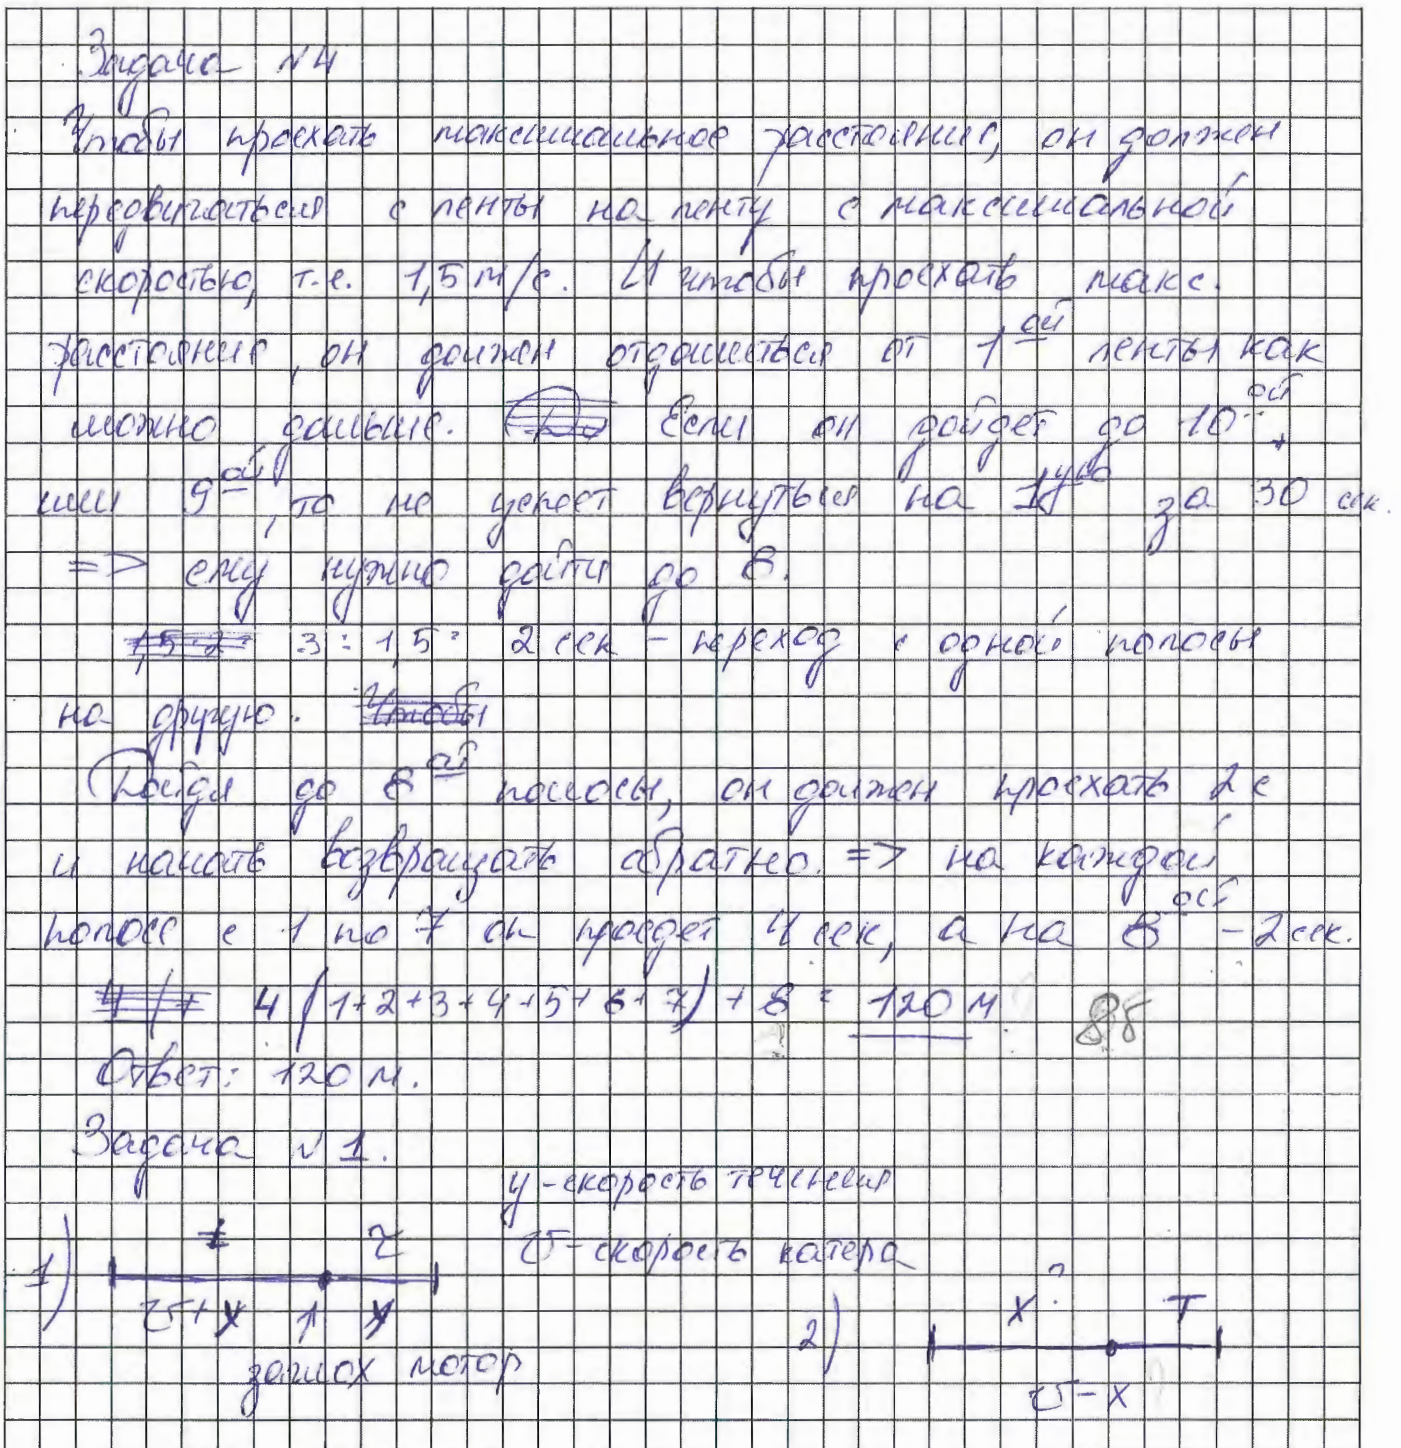 Задача №4
Чтобы проехать максимальное расстояние, он должен
передвигаться с ленты на ленту с максимальной
скоростью, т.е. 1,5 м/с. И чтобы проехать макс.
расстояние, он должен отдалиться от 1ой ленты как
можно дальше. Если он дойдет до 10ой
или 9ой, то не успеет вернуться на 1ую за 30 сек.
=> ему нужно дойти до 8.
3 : 1,5 = 2 сек – переход с одной полосы
на другую.
Дойдя до 8ой полосы, он должен проехать 2 с
и начать возвращать обратно. => на каждой
полосе с 1 по 7 он проедет 4 сек, а на 8ой – 2 сек.
4 (1+2+3+4+5+6+7) + 8 = 120 м 8б
Ответ: 120 м.
Задача №1.
y – скорость течения
v – скорость катера
1) t τ
v+y y
заглох мотор
2) x ? T
v–x